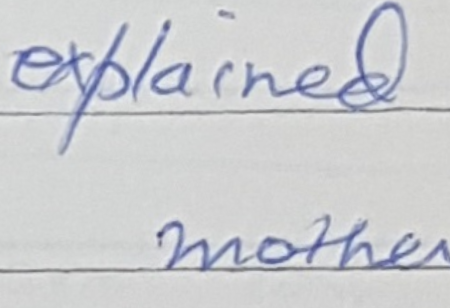 explained
mother